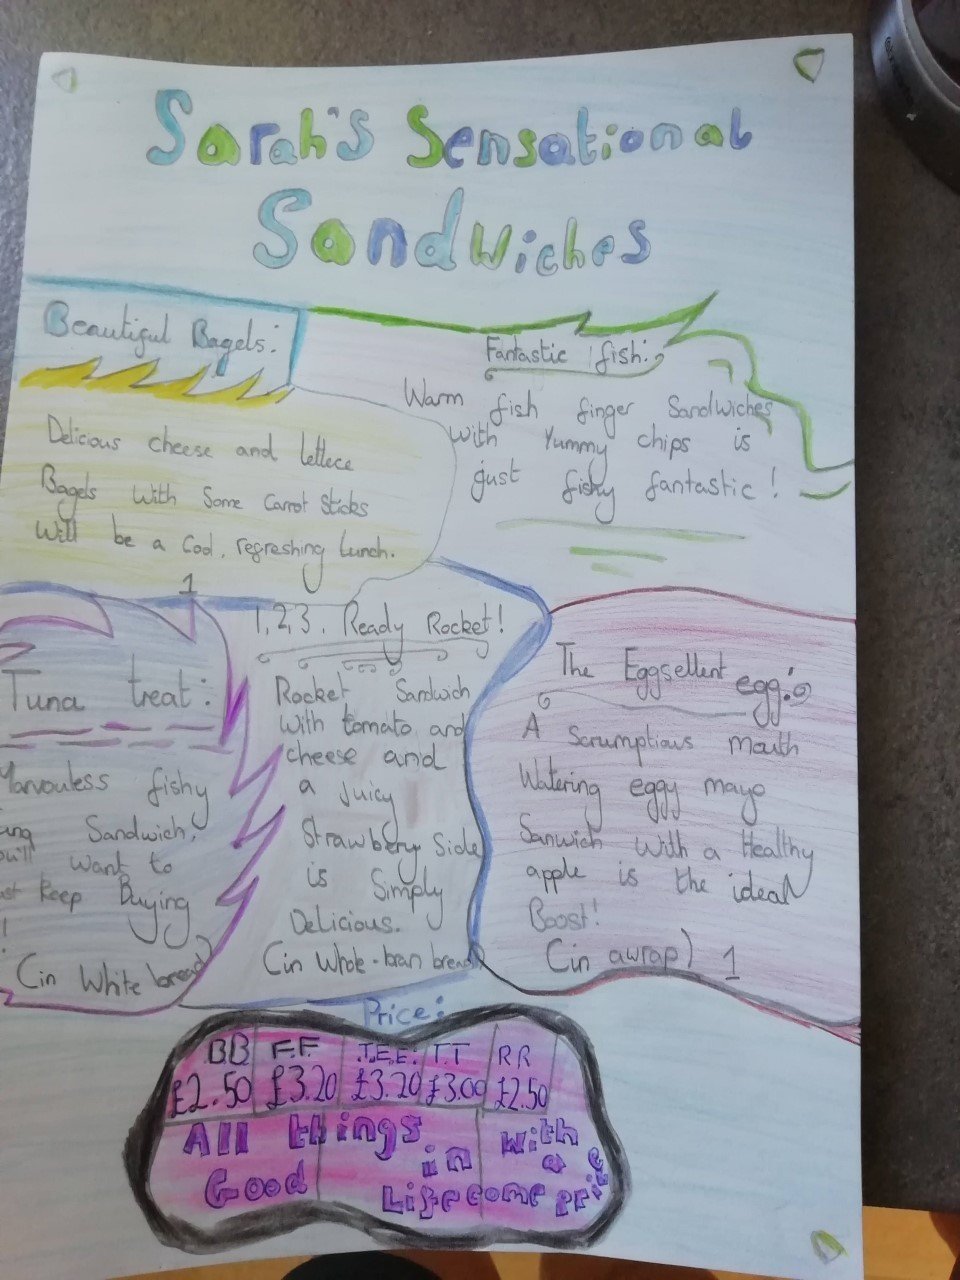 Sarah's Sensational
Sandwiches
Beautiful Bagels:
Delicious cheese and lettece
Bagels With Some Carrot Sticks
Will be a Cool, refreshing Lunch.
1
Fantastic fish:
Warm fish finger Sandwiches
With Yummy chips is
just fishy fantastic!
Tuna treat:
Marvouless fishy
Sandwich,
want to
keep Buying
!
(in White bread)
1,2,3. Ready Rocket!
Rocket Sandwich
With tomato and
cheese and
a juicy
Strawbery Side
is Simply
Delicious.
(in Whole-bran bread)
The Eggsellent egg:
A Scrumptious mouth
Watering eggy mayo
Sanwich With a Healthy
apple is the ideal
Boost!
(in a wrap) 1
Price:
BB F.F T.E.E. TT RR
£2.50 £3.20 £3.20 £3.00 £2.50
All things in With a
Good Life come price